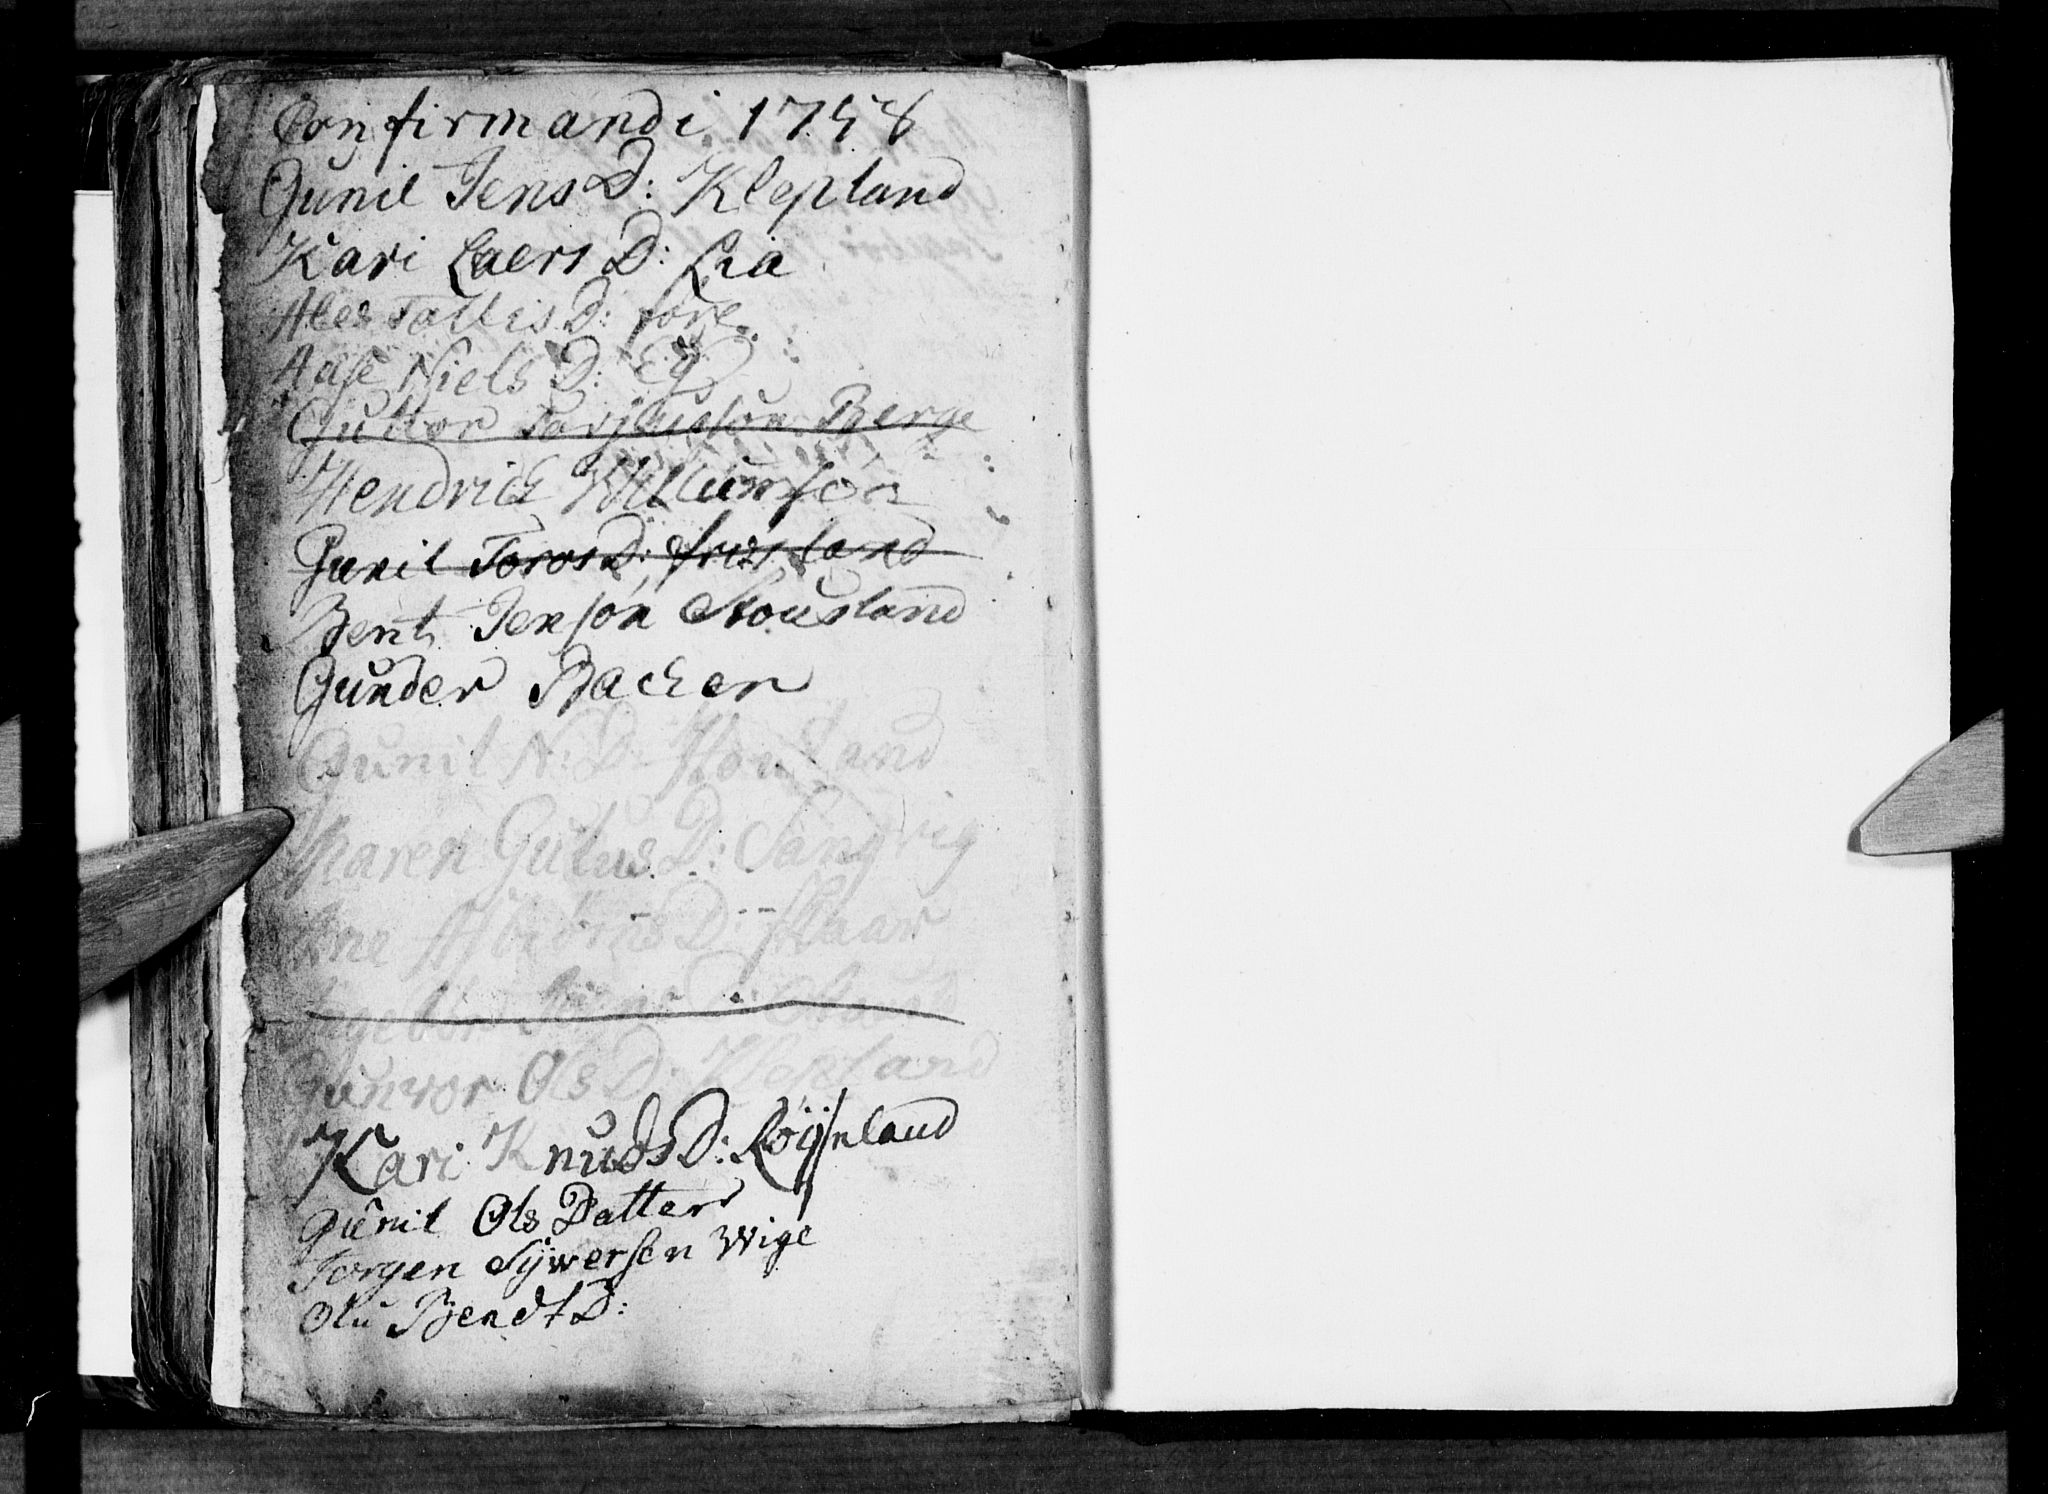 Confirmandi 1758
Gunil Jens D: Klepland
Kari Laers D: Lia
Ales Tallis D: fore
Aase Niels D: Eg
Guttor Tarjeuson Berge
Hendrich Willumsøn
Gunil Toros D: frøisland
Bent Jensøn Stousland
Gunder Backen
Gunil N: D: Houland
Maren Gutus D: Langvig
Ane Abiørns D: Flaar
Ingebor D:
Gunvor Ols D: Klepland
Kari Knuds D: Røÿneland
Gunil Ols Datter
Jørgen Sÿwersen Wige
Olu Bendt D: